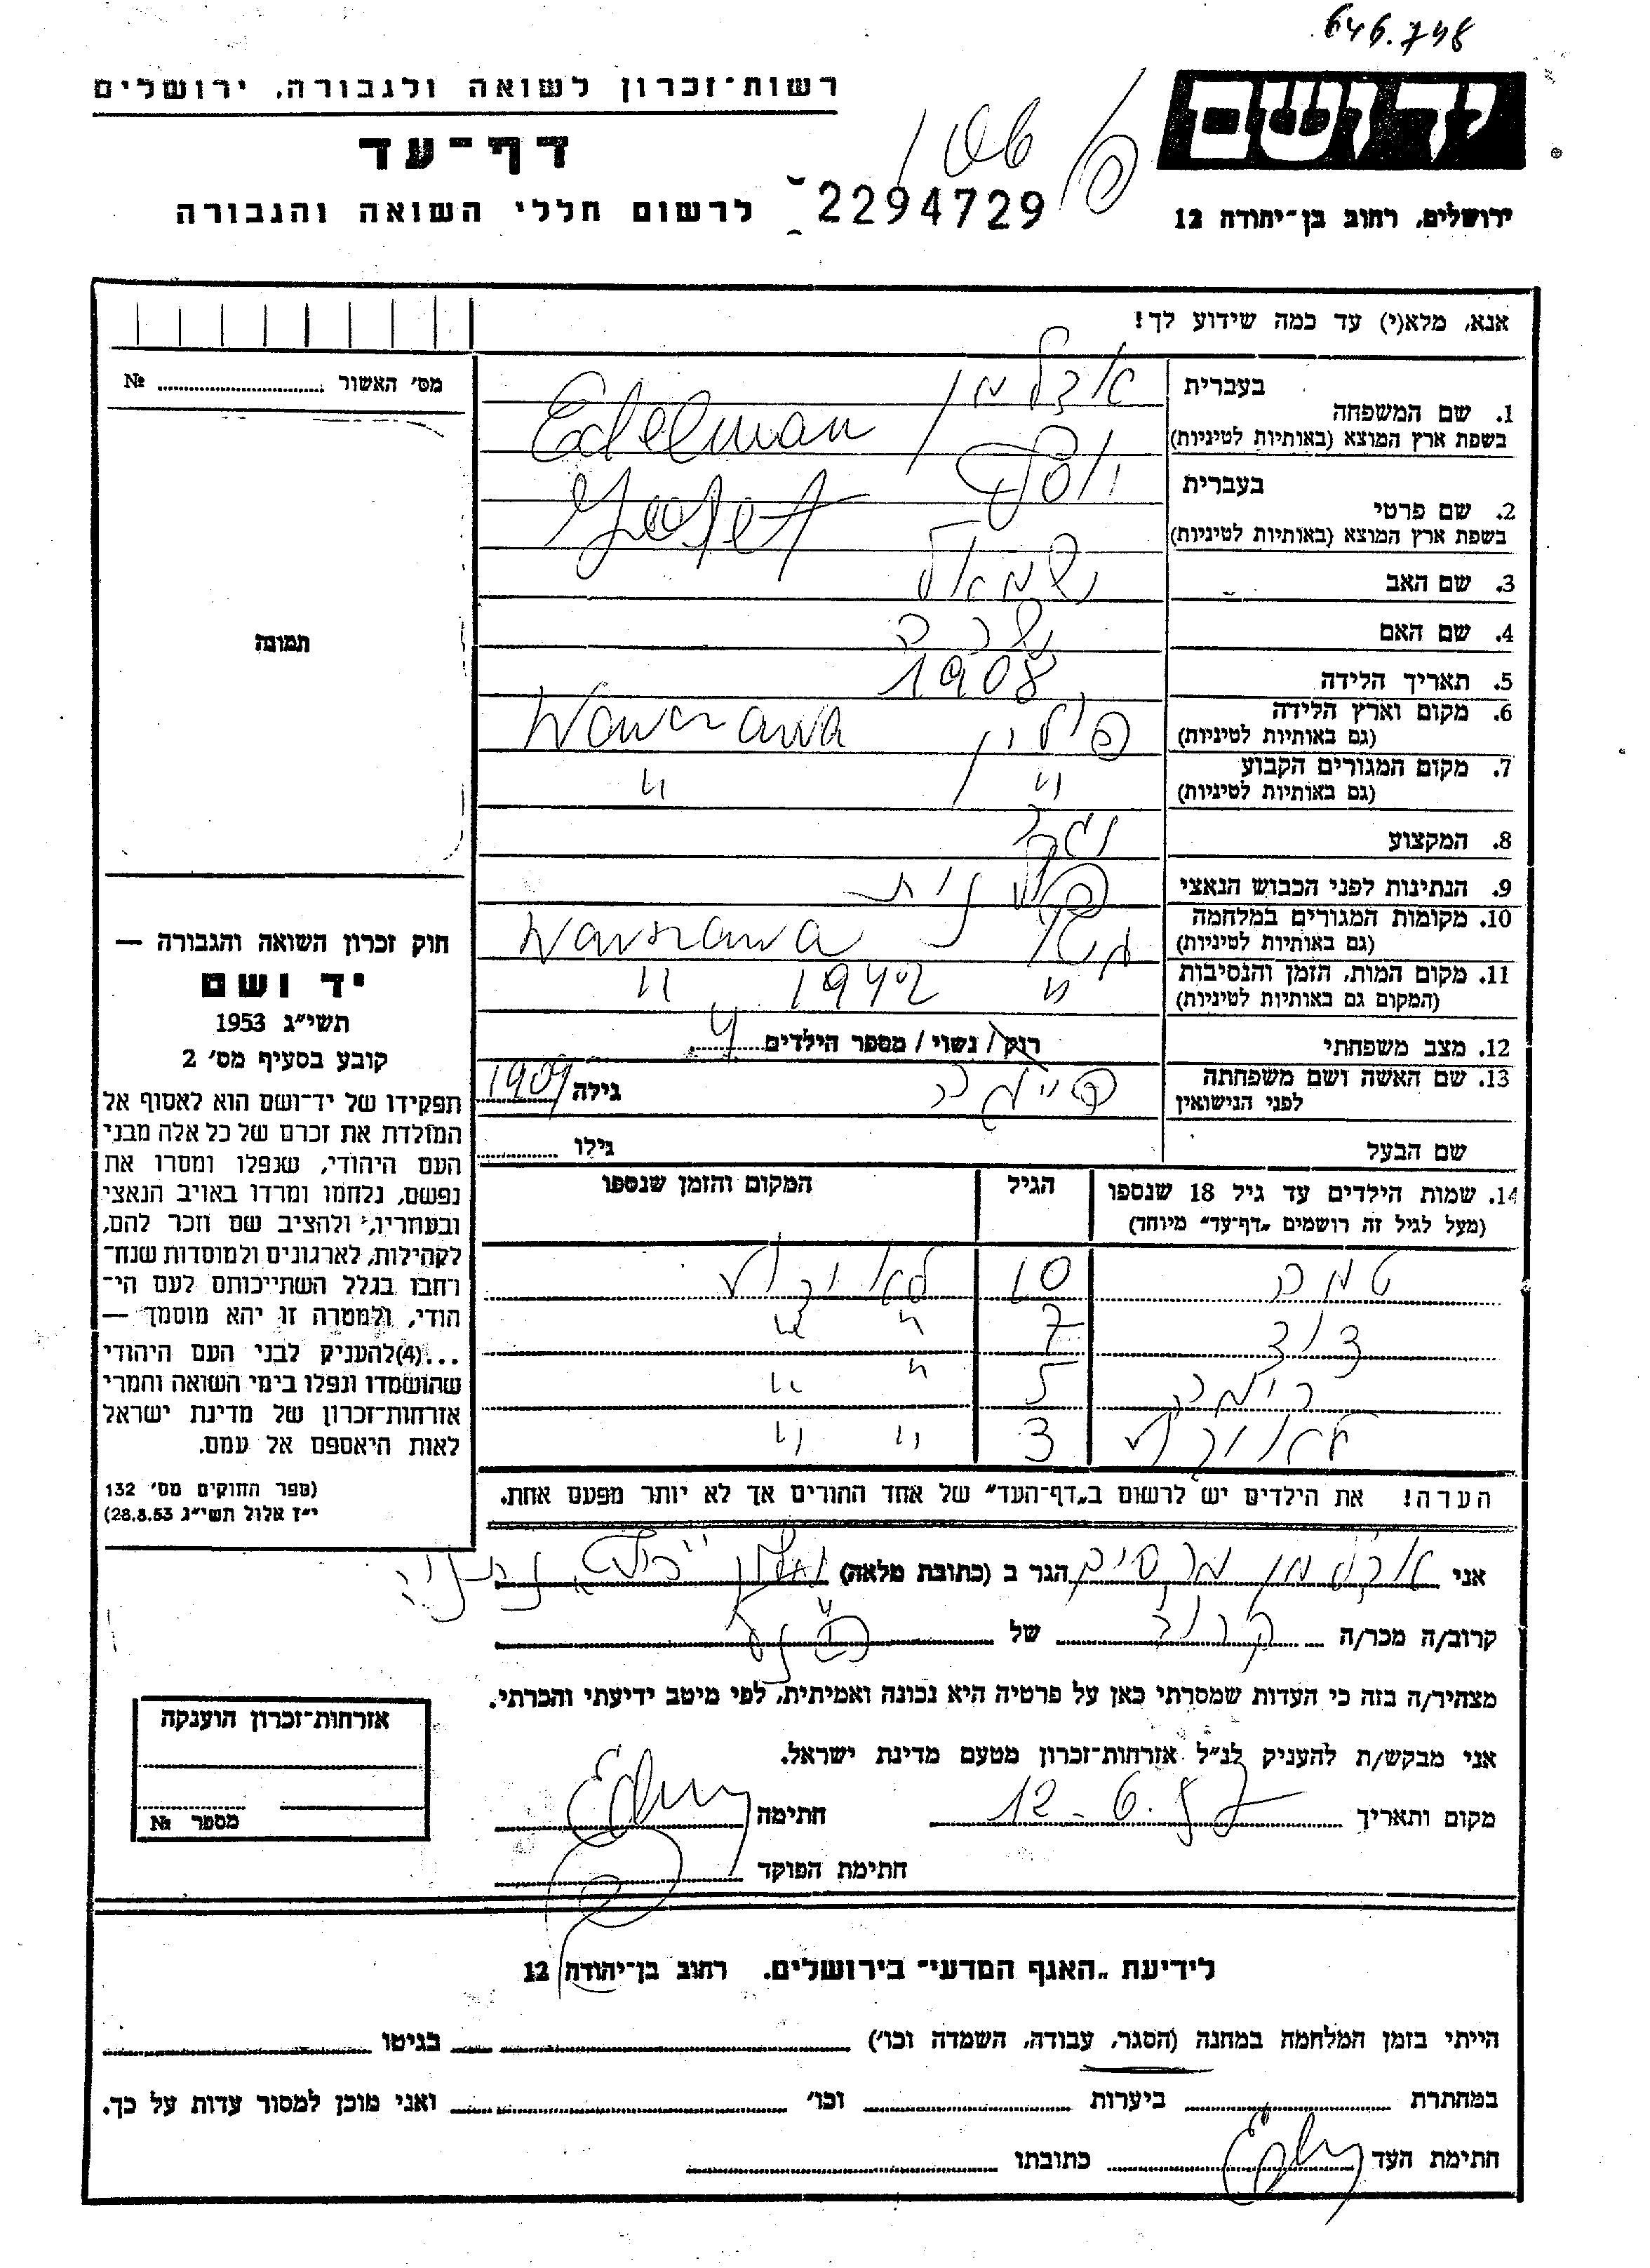 646.748
ידושם
רשות־זכרון לשואה ולגבורה, ירושלים
דף־עד
לרשום חללי השואה והגבורה
2294729
ירושלים, רחוב בן־יהודה 12
אנא, מלא(י) עד כמה שידוע לך!
מס׳ האשור № 
תמונה
1. שם המשפחה בעברית אדלמן
בשפת ארץ המוצא (באותיות לטיניות) Edelman
2. שם פרטי בעברית יוסף
בשפת ארץ המוצא (באותיות לטיניות)
3. שם האב שמואל
4. שם האם שרה
5. תאריך הלידה 1908
6. מקום וארץ הלידה פולין Warszawa
(גם באותיות לטיניות)
7. מקום המגורים הקבוע " "
(גם באותיות לטיניות)
8. המקצוע
9. הנתינות לפני הכבוש הנאצי פולנית
10. מקומות המגורים במלחמה Warszawa
(גם באותיות לטיניות)
11. מקום המות, הזמן והנסיבות " 1942 "
(המקום גם באותיות לטיניות)
12. מצב משפחתי רווק / נשוי / מספר הילדים 4
13. שם האשה ושם משפחתה גילה 1909
לפני הנישואין
שם הבעל גילו
14. שמות הילדים עד גיל 18 שנספו הגיל המקום והזמן שנספו
(מעל לגיל זה רושמים „דף־עד" מיוחד)
10
דוד 7 " "
5 " "
3 " "
הערה! את הילדים יש לרשום ב„דף־העד" של אחד ההורים אך לא יותר מפעם אחת.
חוק זכרון השואה והגבורה —
יד ושם
תשי״ג 1953
קובע בסעיף מס׳ 2
תפקידו של יד־ושם הוא לאסוף אל
המולדת את זכרם של כל אלה מבני
העם היהודי, שנפלו ומסרו את
נפשם, נלחמו ומרדו באויב הנאצי
ובעוזריו, ולהציב שם וזכר להם,
לקהילות, לארגונים ולמוסדות שנח־
רחבו בגלל השתייכותם לעם הי־
הודי, ולמטרה זו יהא מוסמך —
...(4)להעניק לבני העם היהודי
שהושמדו ונפלו בימי השואה והמרי
אזרחות־זכרון של מדינת ישראל
לאות היאספם אל עמם.
(ספר החוקים מס׳ 132
י״ז אלול תשי״ג 28.8.53)
אני אדלמן הגר ב (כתובת מלאה) נתניה
קרוב/ה מכר/ה קרוב של
מצהיר/ה בזה כי העדות שמסרתי כאן על פרטיה היא נכונה ואמיתית, לפי מיטב ידיעתי והכרתי.
אני מבקש/ת להעניק לנ״ל אזרחות־זכרון מטעם מדינת ישראל.
מקום ותאריך 12-6.57 חתימה
חתימת הפוקד
אזרחות־זכרון הוענקה
מספר №
לידיעת „האגף המדעי־ בירושלים. רחוב בן־יהודה 12
הייתי בזמן המלחמה במחנה (הסגר, עבודה, השמדה וכו׳) בגיטו
במחתרת ביערות וכו׳ ואני מוכן למסור עדות על כך.
חתימת העד כתובתו